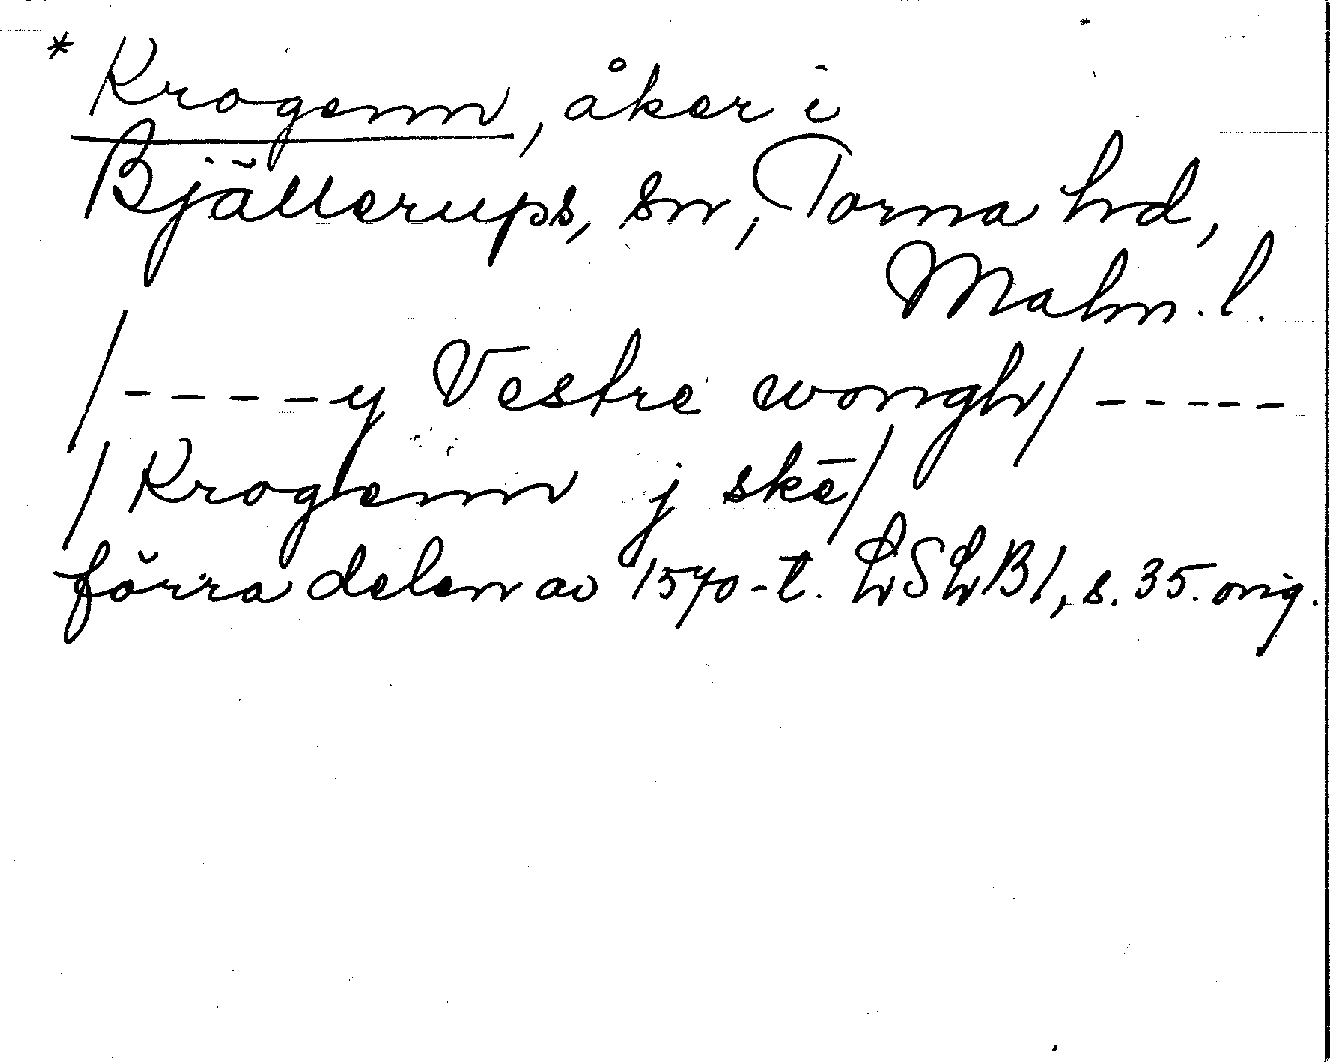 * Krogenn, åker i
Bjällerups, sn, Torna hd,
Malm. l.
/-----y Vestre wongh/-----
/Krogenn j skē/
förra delen av 1570-t. LSLB1, s. 35. orig.